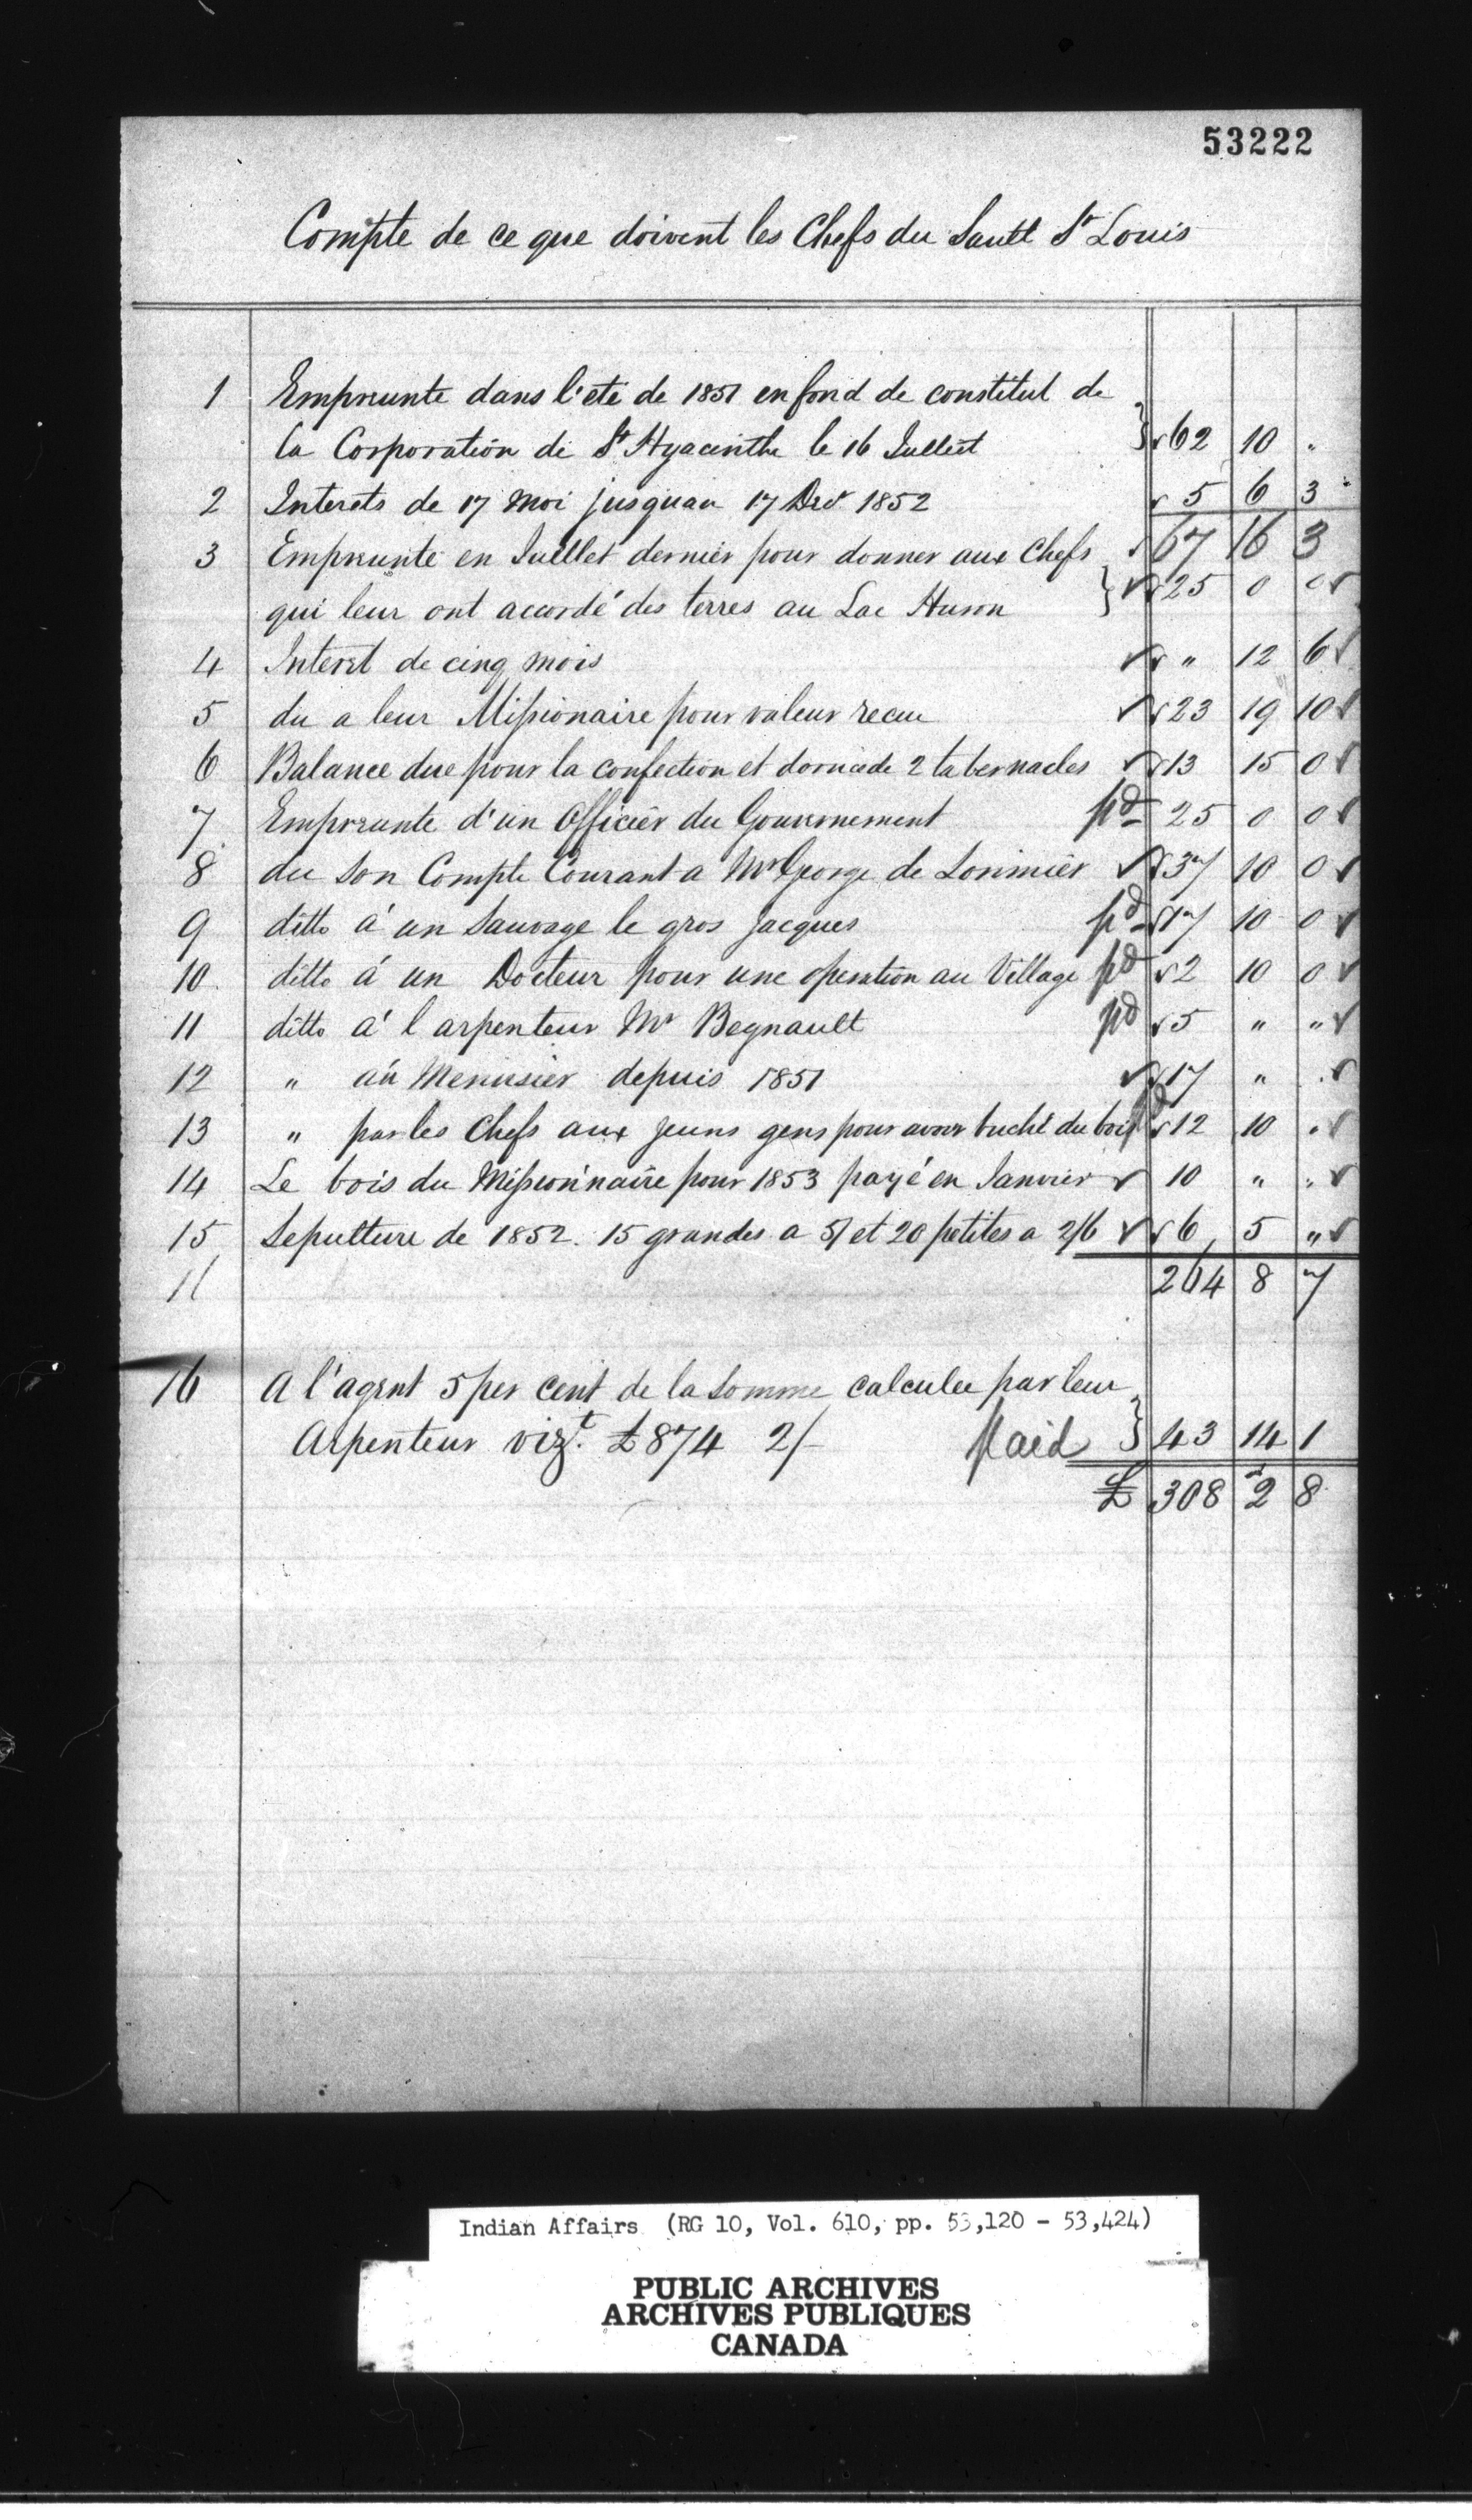 53222
Compte de ce que doivent les Chefs du Sault St Louis
1 Emprunte dans l'eté de 1851 en fond de constitut de
la Corporation de St Hyacinthe le 16 Juillet } 62 10 "
2 Interets de 17 moi jusquau 17 Dec 1852 5 6 3
67 16 3
3 Emprunte en Juillet dernier pour donner aux Chefs
qui leur ont accordé des terres au Lac Huron } 25 0 0
4 Interet de cinq mois " 12 6
5 du a leur Missionaire pour valeur recue 23 19 10
6 Balance due pour la confection et dorure de 2 tabernacles 13 15 0
7 Emprunte d'un Officier du Gouvernement pd 25 0 0
8 du Son Compte Courant a Mr George de Lorimier 37 10 0
9 ditto á un Sauvage le gros Jacques pd 17 10 0
10 ditto á un Docteur pour une operation au Village pd 2 10 0
11 ditto a' l arpenteur Mr Begnault pd 5 " "
12 " au Menusier depuis 1851 17 " "
13 " par les Chefs aux jeuns gens pour avoir buché du bois pd 12 10 "
14 Le bois du Missionnaire pour 1853 payé en Janvier 10 " "
15 Sepulture de 1852. 15 grandes a 5/ et 20 petites a 2/6 6 5 "
264 8 7
16 A l'agent 5 per cent de la Somme calculee par leur
Arpenteur vizt. £874 2/- Paid } 43 14 1
£ 308 2 8
Indian Affairs (RG 10, Vol. 610, pp. 53,120 - 53,424)
PUBLIC ARCHIVES
ARCHIVES PUBLIQUES
CANADA